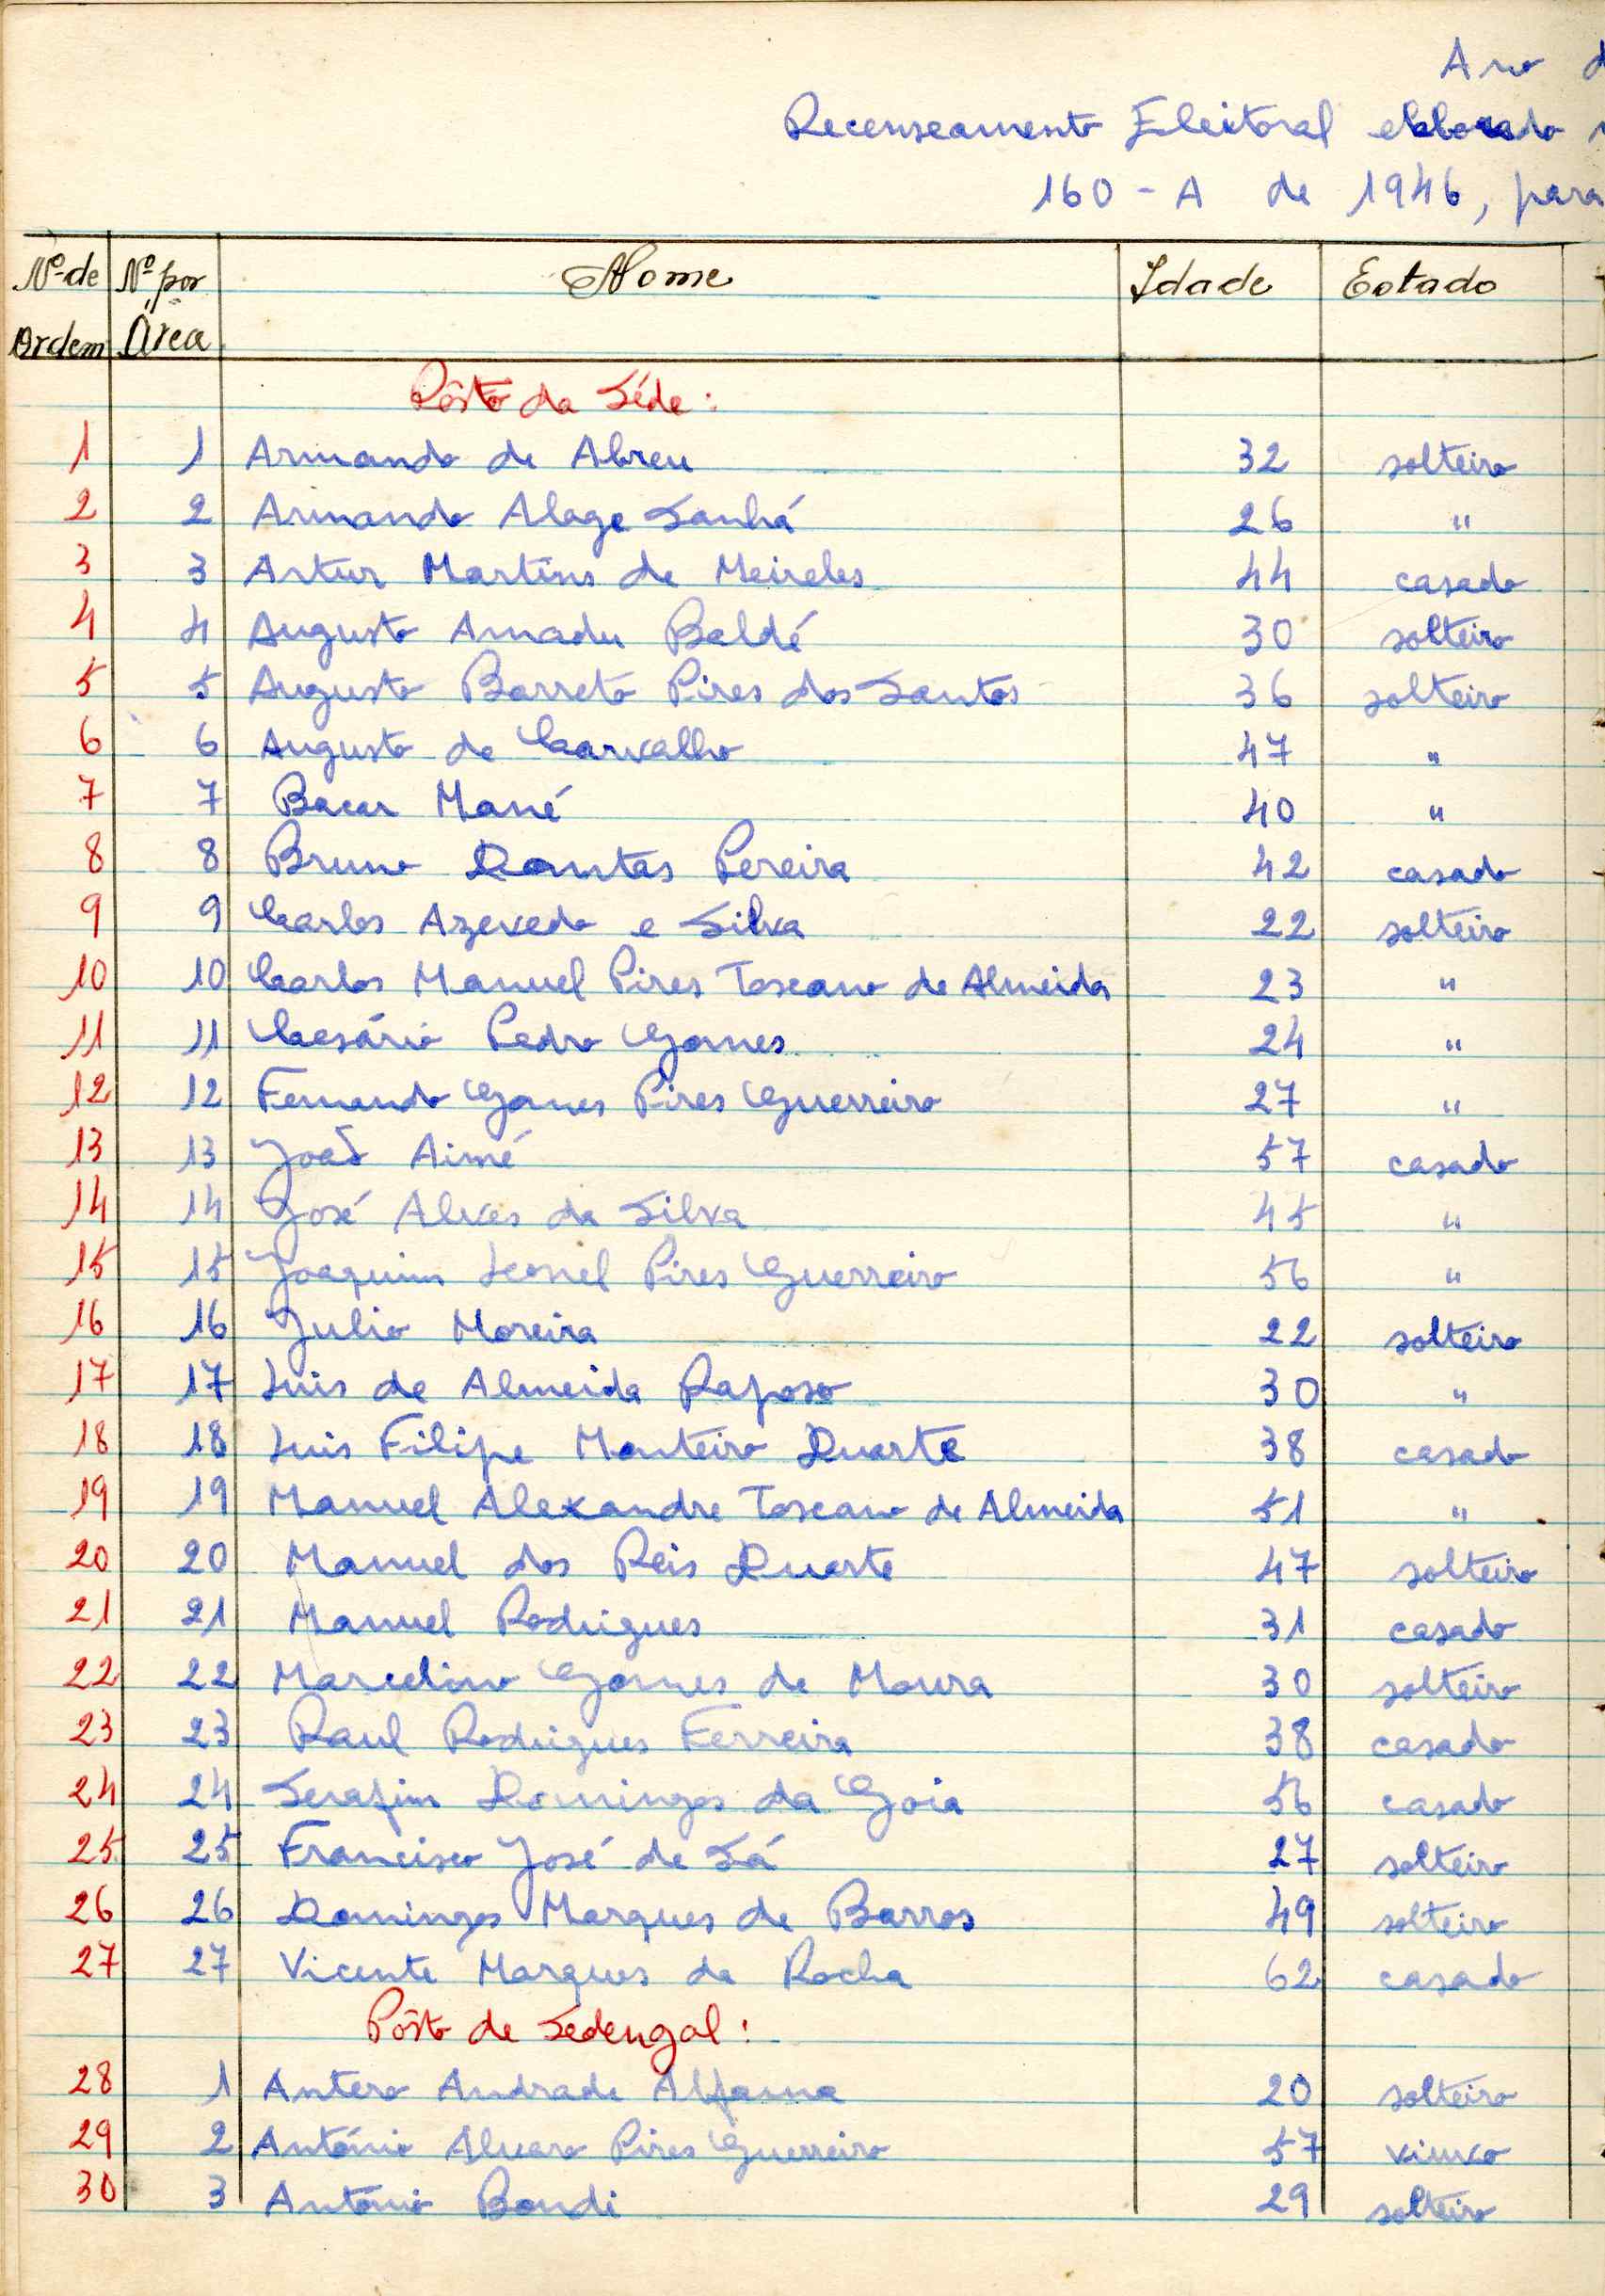 Ano d
Recenseamento Eleitoral elaborado
160-A de 1946, para
Nº de Ordem Nº por Área Nome Idade Estado
Pôsto da Séde:
1 1 Armando de Abreu 32 solteiro
2 2 Armando Alage Sanhá 26 "
3 3 Artur Martins de Meireles 44 casado
4 4 Augusto Amadu Baldé 30 solteiro
5 5 Augusto Barreto Pires dos Santos 36 solteiro
6 6 Augusto de Carvalho 47 "
7 7 Bacar Mané 40 "
8 8 Bruno Dantas Pereira 42 casado
9 9 Carlos Azevedo e Silva 22 solteiro
10 10 Carlos Manuel Pires Toscano de Almeida 23 "
11 11 Cesário Pedro Gomes 24 "
12 12 Fernando Gomes Pires Guerreiro 27 "
13 13 João Aimé 57 casado
14 14 José Alves da Silva 45 "
15 15 Joaquim Leonel Pires Guerreiro 56 "
16 16 Julio Moreira 22 solteiro
17 17 Luis de Almeida Raposo 30 "
18 18 Luis Filipe Monteiro Duarte 38 casado
19 19 Manuel Alexandre Toscano de Almeida 51 "
20 20 Manuel dos Reis Duarte 47 solteiro
21 21 Manuel Rodrigues 31 casado
22 22 Marcelino Gomes de Moura 30 solteiro
23 23 Raul Rodrigues Ferreira 38 casado
24 24 Serafim Domingos da Goia 56 casado
25 25 Francisco José de Sá 27 solteiro
26 26 Domingos Marques de Barros 49 solteiro
27 27 Vicente Marques da Rocha 62 casado
Pôsto de Sedengal:
28 1 Antero Andrade Alfama 20 solteiro
29 2 António Alvaro Pires Guerreiro 57 viuvo
30 3 António Bondi 29 solteiro